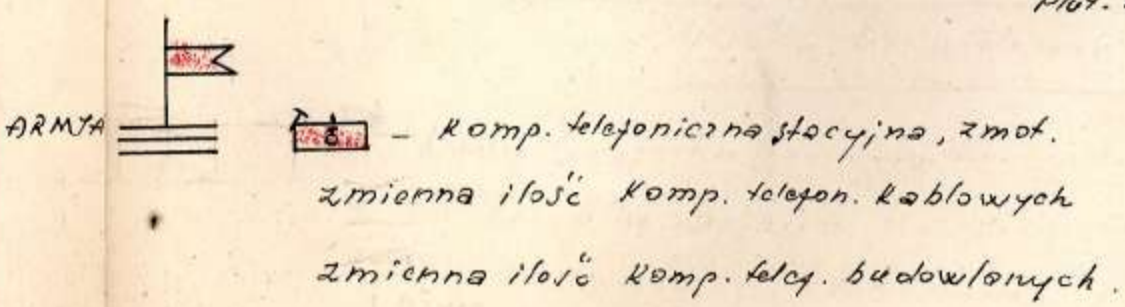 ARMJA
- Komp. telefoniczna stacyjna, zmot.
zmienna ilość Komp. telefon. Kablowych
zmienna ilość Komp. telef. budowlanych.